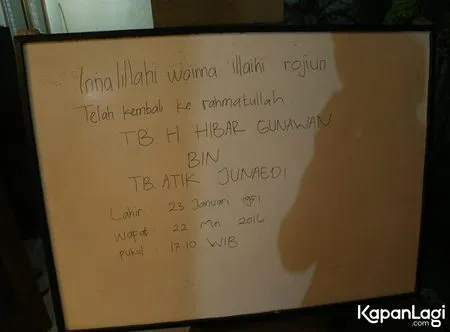 Innalillahi waima illaihi rojiun
Telah kembali ke rahmatullah
TB. H HIBAR GUNAWAN
BIN
TB. ATIK JUNAEDI
Lahir : 23 Januari 1951
Wafat : 22 Mei 2016
pukul : 17.10 WIB
KapanLagi
.com